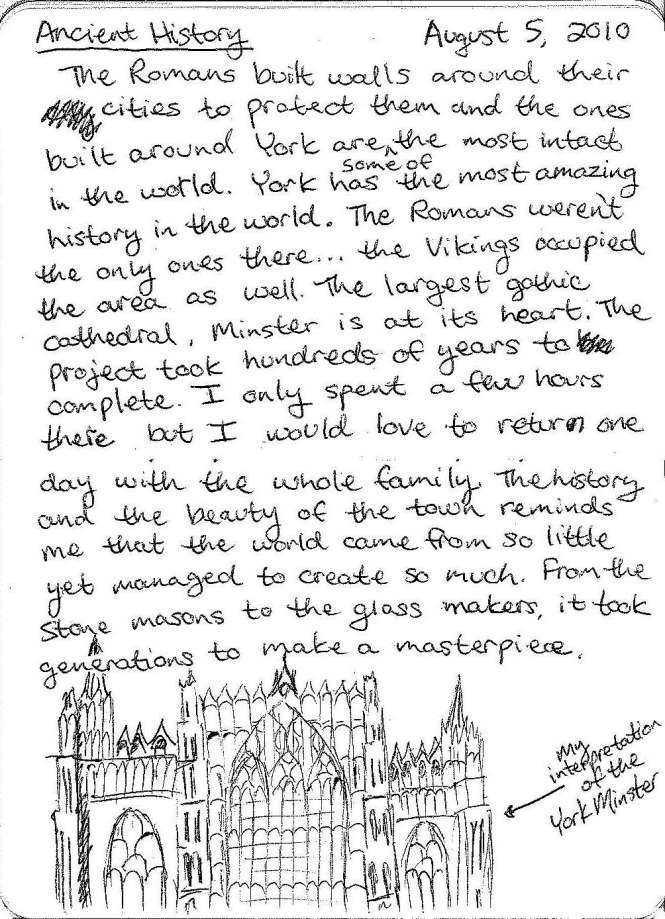 Ancient History August 5, 2010
The Romans built walls around their
cities to protect them and the ones
built around York are the most intact
in the world. York has some of the most amazing
history in the world. The Romans weren't
the only ones there... the Vikings occupied
the area as well. The largest gothic
cathedral, Minster is at its heart. The
project took hundreds of years to
complete. I only spent a few hours
there but I would love to return one
day with the whole family. The history
and the beauty of the town reminds
me that the world came from so little
yet managed to create so much. From the
stone masons to the glass makers, it took
generations to make a masterpiece.
My
interpretation
of the
York Minster